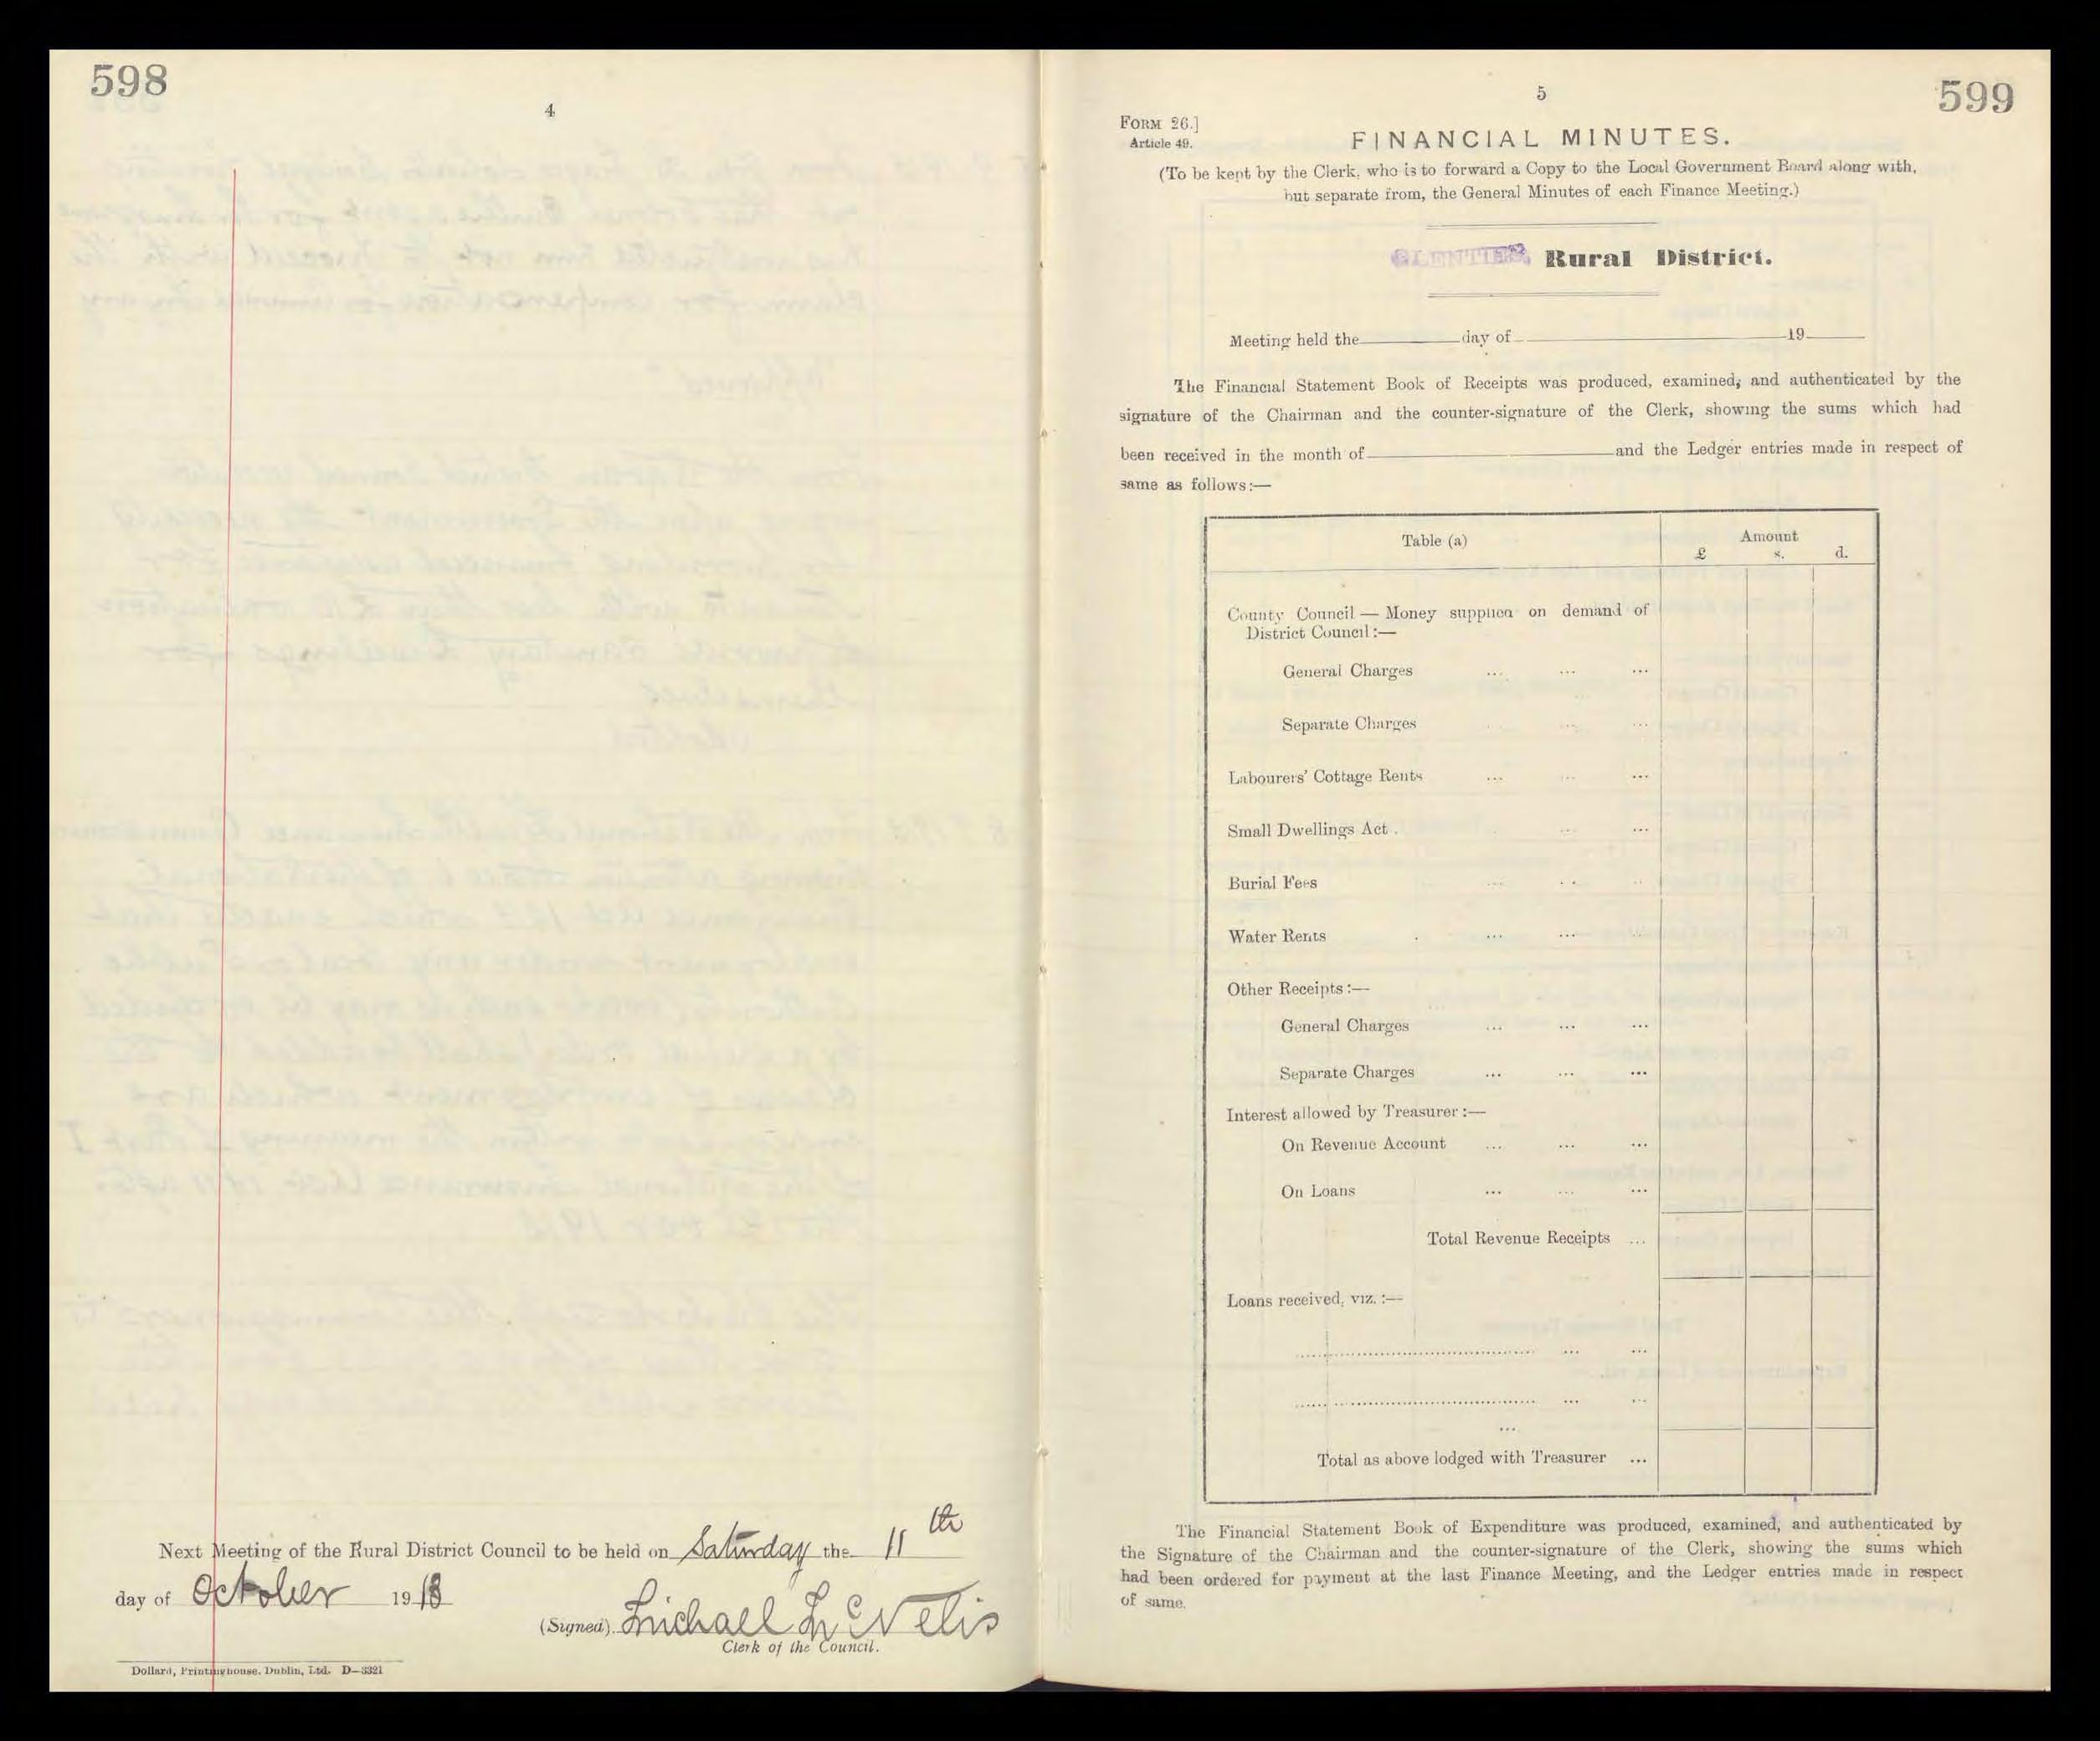 598
4
Next Meeting of the Rural District Council to be held on Saturday the 11th
day of October 1913
(Signed). Michael McNelis
Clerk of the Council.
Dollard, Printinghouse, Dublin, Ltd. D—3321
5
599
FORM 26.]
Article 49.
FINANCIAL MINUTES.
(To be kept by the Clerk, who is to forward a Copy to the Local Government Board along with,
but separate from, the General Minutes of each Finance Meeting.)
GLENTIES Rural District.
Meeting held the day of 19
The Financial Statement Book of Receipts was produced, examined, and authenticated by the
signature of the Chairman and the counter-signature of the Clerk, showing the sums which had
been received in the month of and the Ledger entries made in respect of
same as follows:—
Table (a) Amount
£ s. d.
County Council — Money supplied on demand of
District Council :—
General Charges ... ... ...
Separate Charges ... ... ...
Labourers' Cottage Rents ... ... ...
Small Dwellings Act . ... ...
Burial Fees ... ... ...
Water Rents . ... ...
Other Receipts :—
General Charges ... ... ...
Separate Charges ... ... ...
Interest allowed by Treasurer :—
On Revenue Account ... ... ...
On Loans ... ... ...
Total Revenue Receipts ...
Loans received, viz. :—
Total as above lodged with Treasurer ...
The Financial Statement Book of Expenditure was produced, examined, and authenticated by
the Signature of the Chairman and the counter-signature of the Clerk, showing the sums which
had been ordered for payment at the last Finance Meeting, and the Ledger entries made in respect
of same.